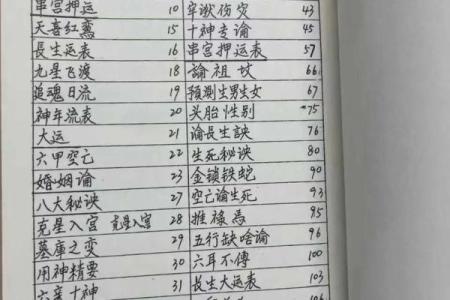 串宫押运 10
天喜红鸾 15
長生运表 16
九星飞渡 18
追魂日流 19
神年流表 20
大运 21
六甲空亡 22
婚姻论 23
八大秘诀 27
克星入宫 克星入宫 28
墓庫之变 29
用神精要 30
六亲十神 31
牢狱伤灾 43
十神专论 45
串宫押运表 57
論祖坟 66
預測生男生女 67
头胎性别 75
論長生訣 76
生死秘诀 80
金锁铁蛇 90
空亡论生死 93
推禄马 95
五行缺啥論 96
六耳不傳 100
長生大运表 103